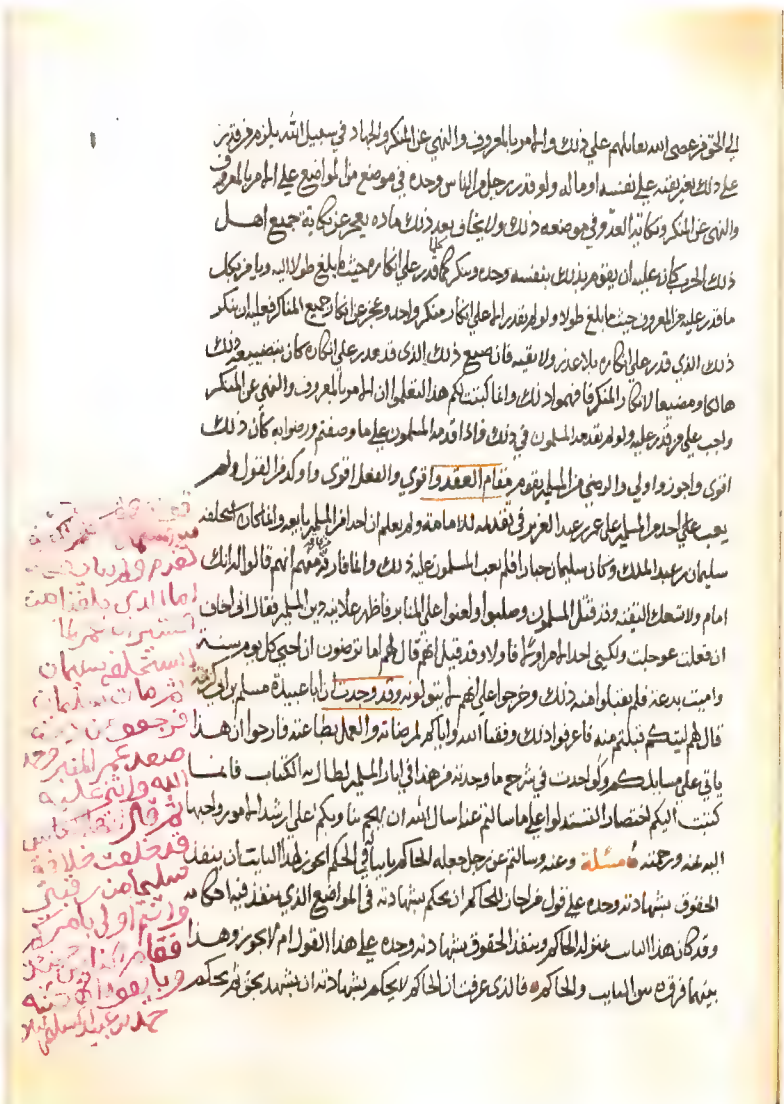 الى الحق فمن عصى الله بعاملهم على ذلك والامر بالمعروف والنهي عن المنكر والجهاد في سبيل الله يلزم من قدر
على ذلك بعد يقينه على نفسه او ماله ولو قدر رجل من الناس وحده في موضع من المواضع على الامر بالمعروف
والنهي عن المنكر ونكاية العدو في موضعه ذلك ولا يخاف بعد ذلك ماده يعجز عن نكاية جميع اهل
ذلك الحرب كان عليه ان يقوم بذلك بنفسه وحده وينكر كلما قدر على انكاره حيث ما بلغ طولا اليه ويامر بكل
ما قدر عليه من المعروف حيث ما بلغ طولا ولو لم يقدر الا على انكار منكر واحد وعجز عن انكار جميع المناكر فعليه ان ينكر
ذلك الذي قدر على انكاره بلا عذر ولا تقية فان ضيع ذلك الذي قد قدر على انكاره كان بتضييعه ذلك
هالكا ومضيعا لانكار المنكر فافهموا ذلك وانما كتبت لكم هذا لتعلموا ان الامر بالمعروف والنهي عن المنكر
واجب على من قدر عليه ولو لم يقدمه المسلمون في ذلك فاذا قدمه المسلمون على ما وصفتم ورضوا به كان ذلك
اقوى واجوز واولى والرضى من المسلمين يقوم مقام العقد واقوى والفعل اقوى واوكد من القول ولم
يعب على احد من المسلمين على عمر بن عبد العزيز في تقدمه للامامة ولم يعلم ان احدا من المسلمين بايعه وانما كان استخلفه
سليمان بن عبد الملك وكان سليمان جبارا فلم يعب المسلمون عليه ذلك وانما فارقه من فارقه منهم انهم قالوا له انك
امام ولا تسعك التقية وقد قتل المسلمون وصلبوا ولعنوا على المنابر فاظهر علانية دين المسلمين فقال اني اخاف
ان فعلت عوجلت ولكني احد الامر اولا فاولا وقد قيل انهم قال لهم اما ترضون ان احيي كل يوم سنة
واميت بدعة فلم يقبلوا منه ذلك وخرجوا على انهم لا يتولونه وقد وجدت ان ابا عبيدة مسلم بن ابي كريمة
قال لهم ليتكم قبلتم منه فاعرفوا ذلك وفقنا الله واياكم لمرضاته والعمل بطاعته فارجوا ان هذا
ياتي على مسايلكم ولو اخذت في شرح ما وجدته من هذا في اثار المسلمين لطال به الكتاب فانما
كتبت اليكم اختصار لتستدلوا على ما سالتم عنه اسال الله ان يهجم بنا وبكم على ارشد الامور واحبها
اليه بمنه ورحمته مسئلة وعنه وسالتم عن رجل جعله الحاكم نايبا في الحكم ايجوز لهذا النايب ان ينفذ
الحقوق بشهادته وحده على قول من اجاز للحاكم ان يحكم بشهادته في المواضع الذي ينفذ فيه احكامه
وقد كان هذا النايب يتولى الحاكم وينفذ الحقوق بشهادته وحده على هذا القول ام لا يجوز وهذا
بينهما فرق بين النايب والحاكم فالذي عرفت ان الحاكم لا يحكم بشهادته ان يشهد بحق ثم يحكم
تقدم ولم يبايع
اما الذي بلغنا من
استخلفه سليمان
ثم مات سليمان
فرجعوا من
صعد عمر المنبر وحمد
الله واثنى عليه
ثم قال ايها الناس
قد خلعت خلافة
سليمان من رقبتي
وانتم اولى بامركم
فقام
وبايعوا